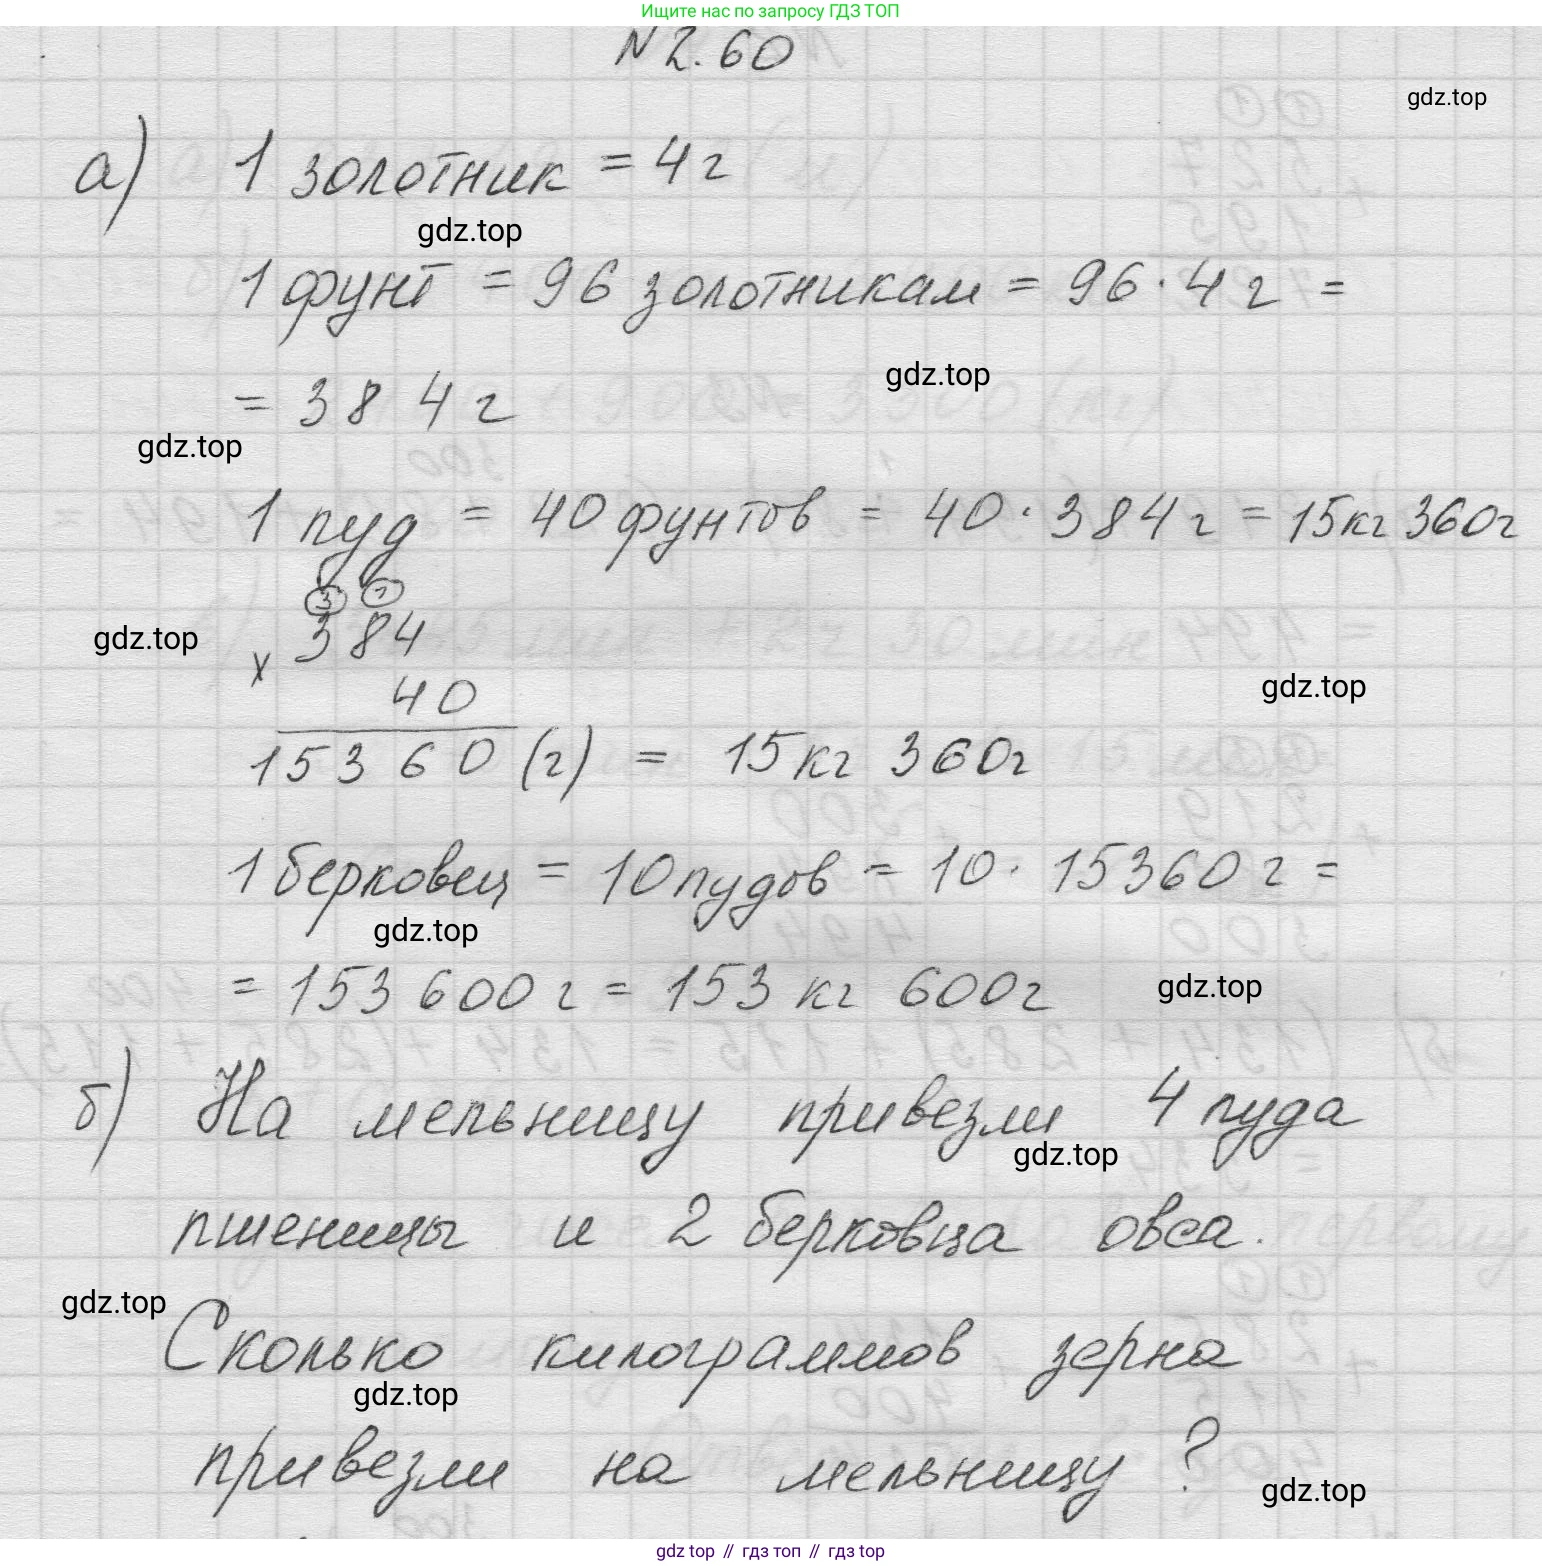 Ищите нас по запросу ГДЗ ТОП
N 2.60
gdz.top
а) 1 золотник = 4 г
gdz.top
1 фунт = 96 золотникам = 96 · 4 г =
gdz.top
= 384 г
gdz.top
1 пуд = 40 фунтов = 40 · 384 г = 15кг 360г
3 1
384
gdz.top
x
40
gdz.top
15360 (г) = 15кг 360г
1 берковец = 10 пудов = 10 · 15360 г =
gdz.top
= 153 600 г = 153 кг 600г
gdz.top
б) На мельницу привезли 4 пуда
gdz.top
пшеницы и 2 берковца овса.
gdz.top
Сколько килограммов зерна
gdz.top
привезли на мельницу?
gdz.top
gdz top // гдз топ // gdz.top